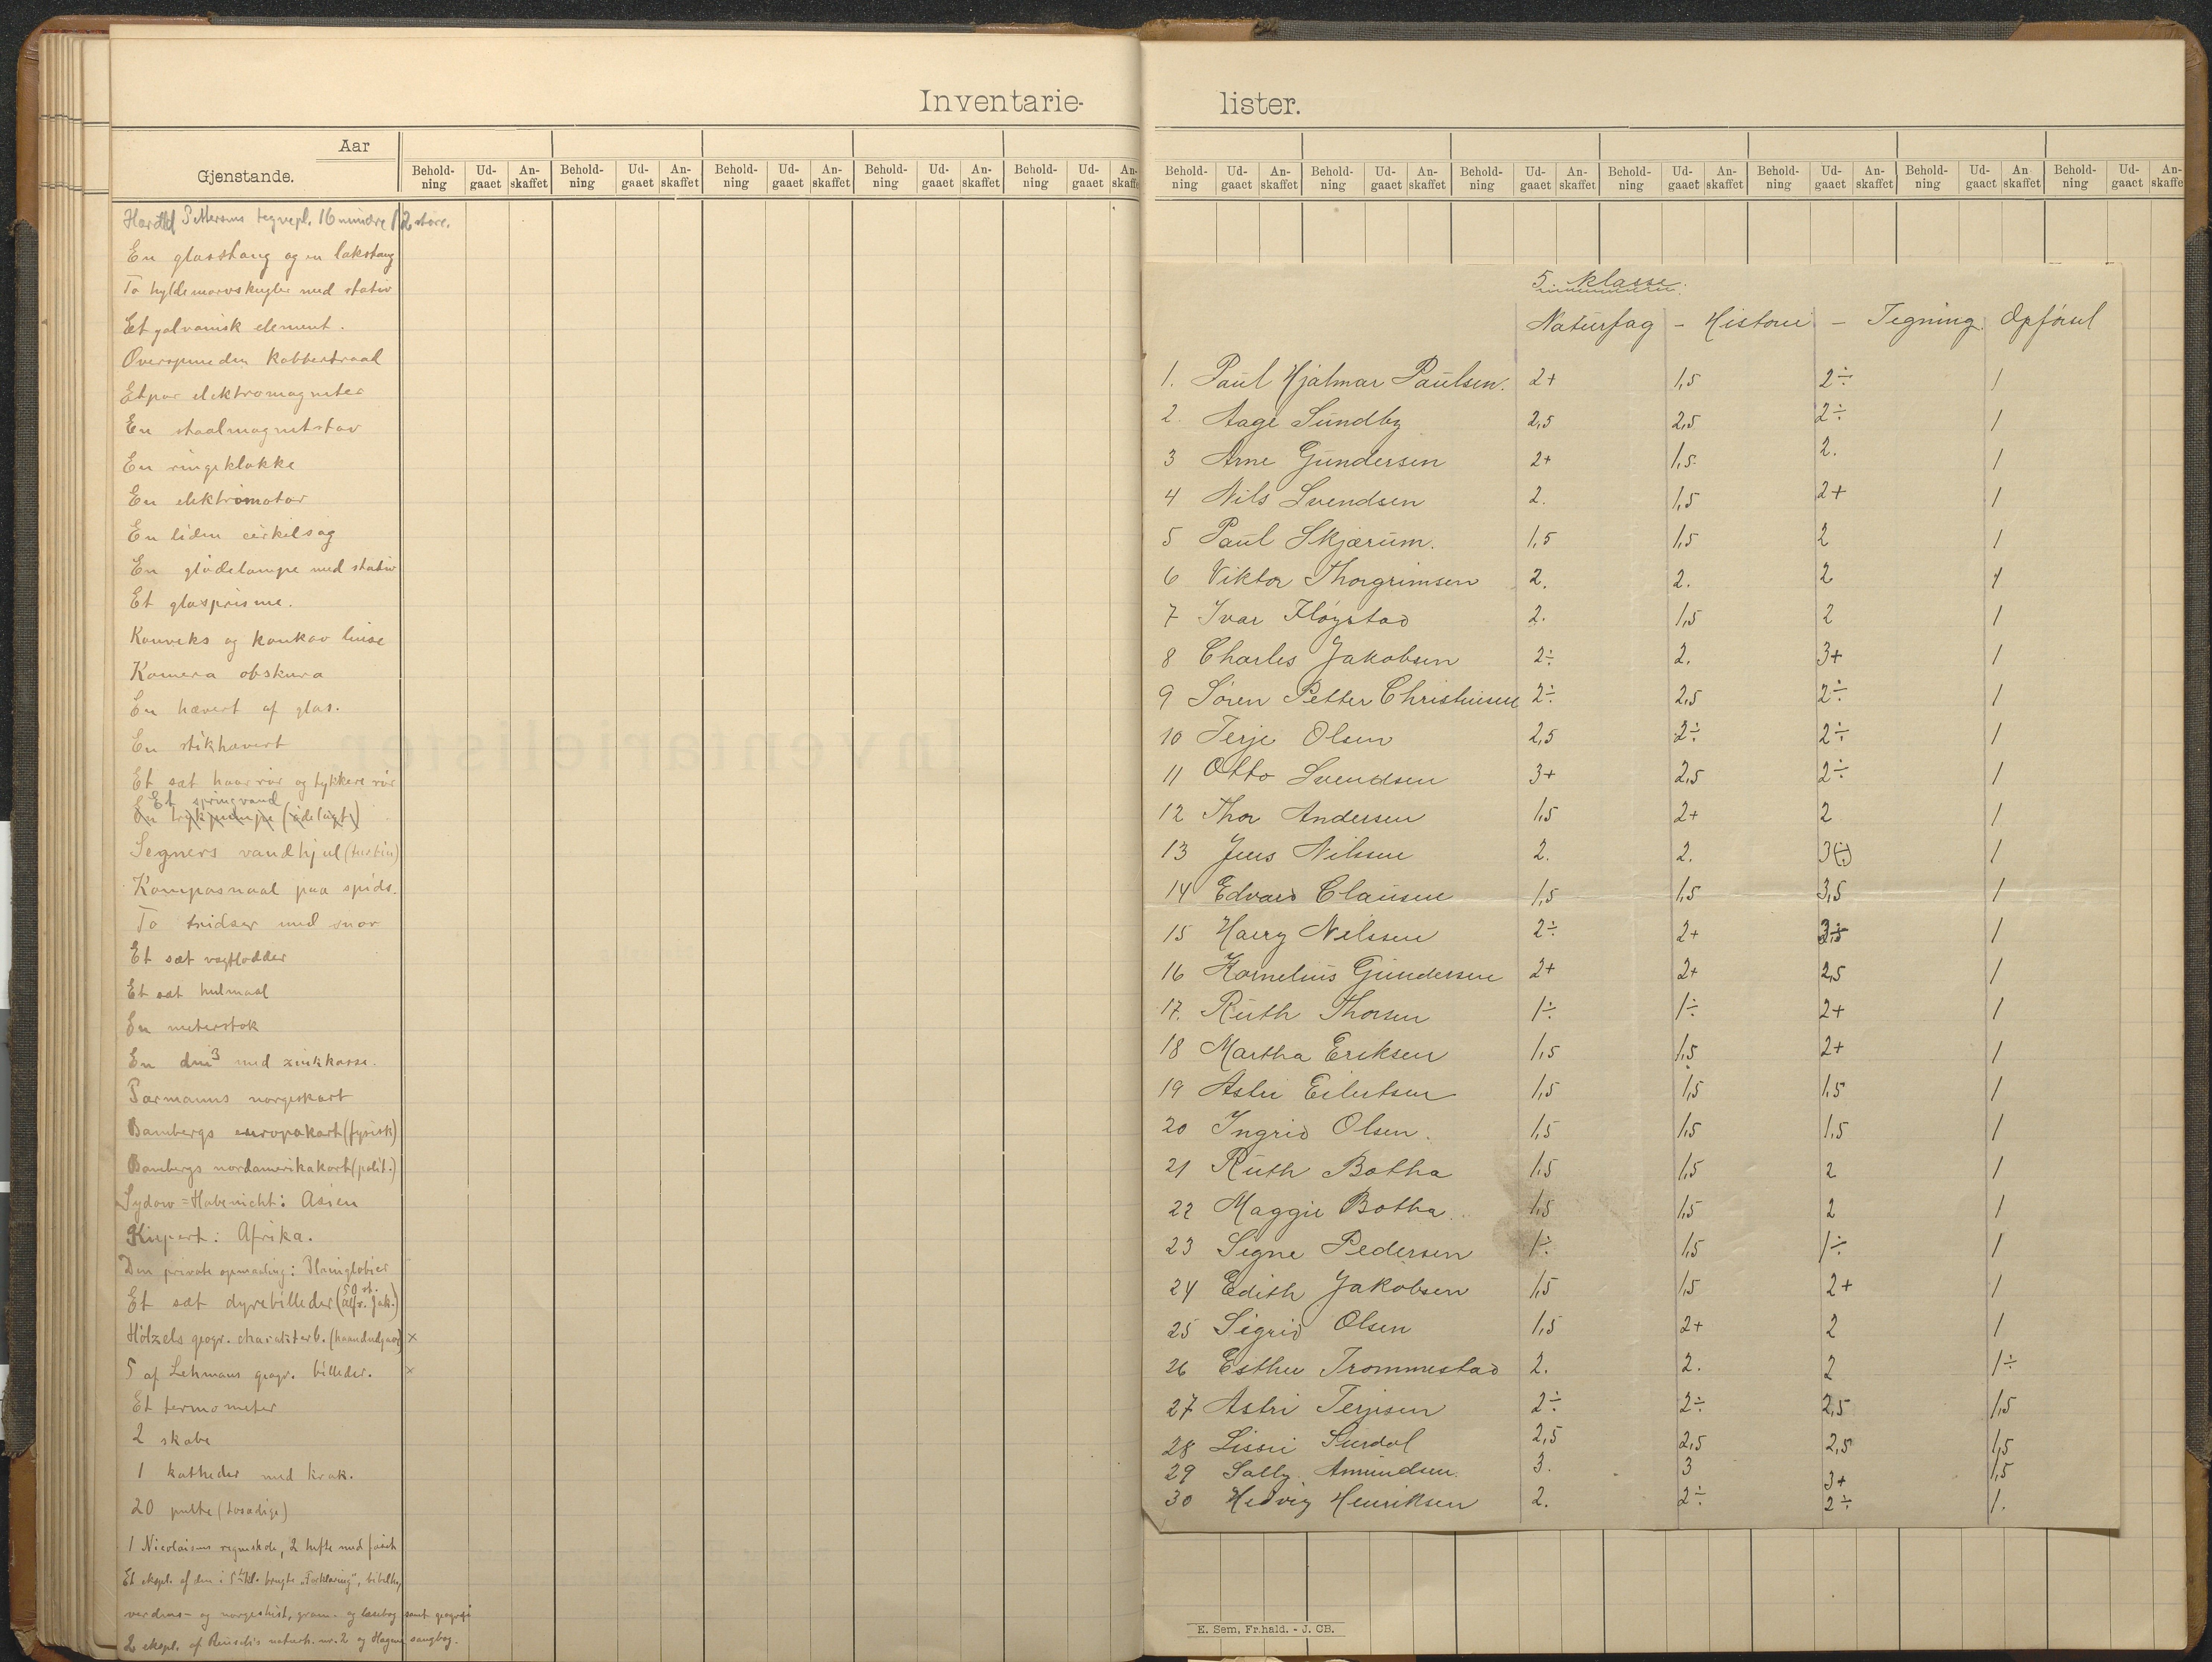 Inventarie-
Aar
Gjenstande.
Behold-ning Ud-gaaet An-skaffet Behold-ning Ud-gaaet An-skaffet Behold-ning Ud-gaaet An-skaffet Behold-ning Ud-gaaet An-skaffet Behold-ning Ud-gaaet An-skaffe
Harald Pettersens tegnepl. 16 mindre 12 store.
En glasstang og en lakstang
To hyldemarvskugler med stativ
Et galvanisk element.
Overspunden kobbertraad
Et par elektromagneter
En staalmagnetstav
En ringeklokke
En elektromotor
En liden cirkelsag
En glödelampe med stativ
Et glasprisme.
Konveks og konkav linse
Kamera obskura
En hævert af glas.
En stikhævert
Et sæt haarrör og tykkere rör
Et springvand
En trykpumpe (ödelagt)
Segners vandhjul (turbin)
Kompasnaal paa spids.
To tridser med snor
Et sæt vegtlodder
Et sæt hulmaal
En meterstok
En dm³ med zinkkasse.
Parmanns norgeskart
Bambergs europakart (fysisk)
Bambergs nordamerikakart (polit.)
Sydow-Habenicht: Asien
Kiepert: Afrika.
Den private opmaaling: Planiglobier
Et sæt dyrebilleder (50 st. alfr. Jak.)
Hölzels geogr. charakterb. (haandudgave) ×
5 af Lehmans geogr. billeder. ×
Et termometer
2 skabe
1 katheder med krak.
20 pulte (tosædige)
1 Nicolaisens regneskole, 2 hefte med facit
Et ekspl. af den i 5te kl. brugte "Forklaring", bibelh.,
verdens- og norgeshist, gram. og læsebog samt geografi
2 ekspl. af naturh. nr. 2 og Hagens sangbog.
lister.
Behold-ning Ud-gaaet An-skaffet Behold-ning Ud-gaaet An-skaffet Behold-ning Ud-gaaet An-skaffet Behold-ning Ud-gaaet An-skaffet Behold-ning Ud-gaaet An-skaffet Behold-ning Ud-gaaet An-skaffet Behold-ning Ud-gaaet An-skaffe
5. klasse.
Naturfag - Historie - Tegning. Opförsel
1. Paul Hjalmar Paulsen. 2+ 1,5 2÷ 1
2. Aage Sundby 2,5 2,5 2÷ 1
3 Arne Gundersen 2+ 1,5. 2. 1
4 Nils Svendsen 2. 1,5 2+ 1
5 Paul Skjærum. 1,5 1,5 2 1
6 Viktor Thorgrimsen 2. 2. 2 1
7 Ivar Fløystad 2. 1,5 2 1
8 Charles Jakobsen 2÷ 2. 3+ 1
9 Sören Petter Christensen 2÷ 2,5 2÷ 1
10 Terje Olsen 2,5 2÷ 2÷ 1
11 Otto Svendsen 3+ 2,5 2÷ 1
12 Thor Andersen 1,5 2+ 2 1
13 Jens Nilssen 2. 2. 3(÷) 1
14 Edvard Clausen 1,5 1,5 3,5 1
15 Harry Nelssen 2÷ 2+ 1
16 Kornelius Gundersen 2+ 2+ 2,5 1
17. Ruth Thorsen 1÷ 1÷ 2+ 1
18 Martha Eriksen 1,5 1,5 2+ 1
19 Astri Eilertsen 1,5 1,5 1,5 1
20 Ingrid Olsen. 1,5 1,5 1,5 1
21 Ruth Botha 1,5 1,5 2 1
22 Maggie Botha. 1,5 1,5 2 1
23 Signe Pedersen 1÷ 1,5 1÷ 1
24 Edith Jakobsen 1,5 1,5 2+ 1
25 Sigrid Olsen 1,5 2+ 2 1
26 Esther Trommestad 2. 2. 2 1÷
27 Astri Terjesen 2÷ 2÷ 2,5 1,5
28 Lissie Surdal 2,5 2,5 2,5 1,5
29 Sally Amundsen. 3. 3 3+ 1,5
30 Hedvig Henriksen 2. 2÷ 2÷ 1.
E. Sem, Fr.hald. - J. CB.